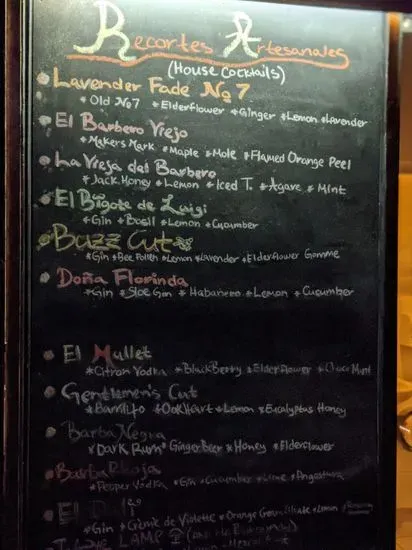 Recortes Artesanales
(House Cocktails)
Lavender Fade No 7
* Old No7 * Elderflower * Ginger * Lemon * Lavender
El Barbero Viejo
* Makers Mark * Maple * Mole * Flamed Orange Peel
La Vieja del Barbero
* Jack Honey * Lemon * Iced T. * Agave * Mint
El Bigote de Luigi
* Gin * Basil * Lemon * Cucumber
Buzz Cut
* Gin * Bee Pollen * Lemon * Lavender * Elderflower Gomme
Doña Florinda
* Gin * Sloe Gin * Habanero * Lemon * Cucumber
El Mullet
* Citron Vodka * BlackBerry * Elderflower * Choco Mint
Gentlemen's Cut
* Bamlito * OakHeart * Lemon * Eucalyptus Honey
Barba Negra
* Dark Rum * Ginger Beer * Honey * Elderflower
Barba Rhoja
* Pepper Vodka * Gin * Cucumber * Lime * Angostura
El
* Gin * Crème de Violette * Orange * Lemon
I Love LAMP